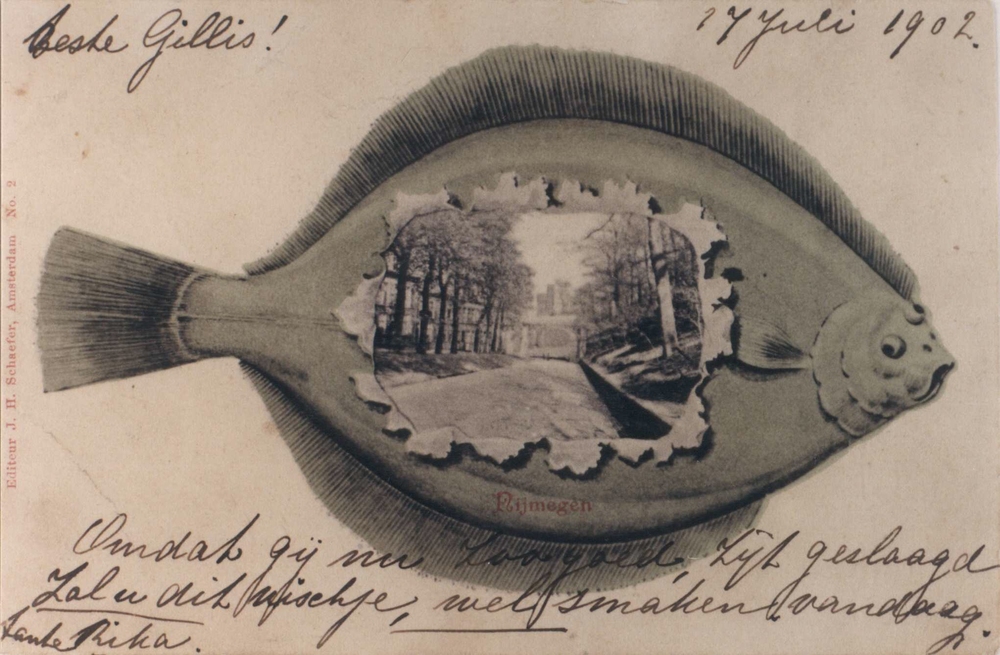 Beste Gillis!
17 Juli 1902.
Editeur J. H. Schaefer, Amsterdam No. 2
Nijmegen
Omdat gij nu zoo goed, zijt geslaagd
Zal u dit vischje, wel smaken vandaag.
Tante Rika.